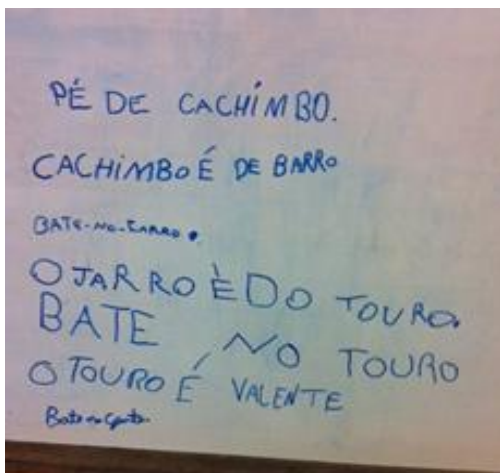 PÉ DE CACHIMBO.
CACHIMBO É DE BARRO
BATE-NO-JARRO.
O JARRO É DO TOURO.
BATE NO TOURO
O TOURO É VALENTE
Bate na gente.